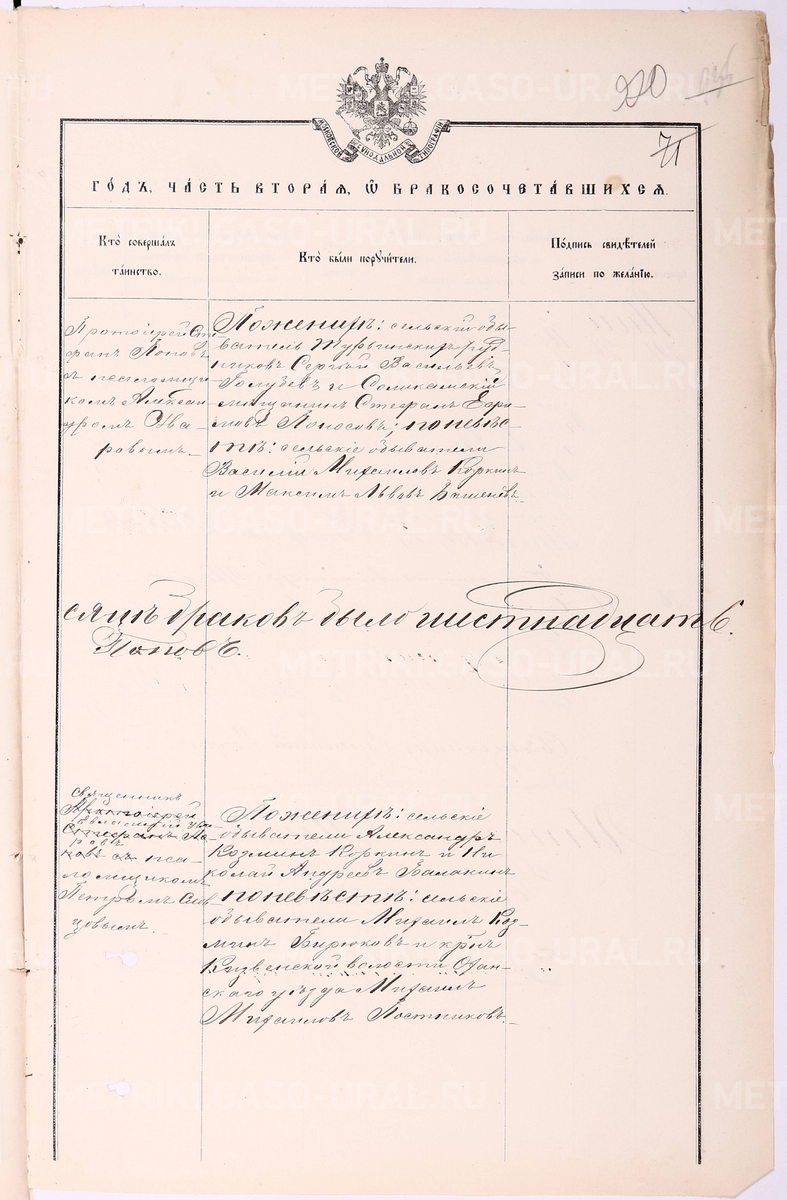 220
71
МОСКОВСКОЙ СУНОДАЛЬНОЙ ТИПОГРАФІИ
ГО́ДЪ, ЧА́СТЬ ВТОРА́Я, Ѡ҆ БРАКОСОЧЕТА́ВШИХСЯ.
Кто̀ соверша́лъ
та́инство.
Кто̀ бы́ли порꙋчи́тели.
По́дпись свидѣ́телей
за́писи по жела́нїю.
Протоіерей Сте
фанъ Поповъ
съ псаломщи
комъ Алексан
дромъ Ува
ровымъ.
По женихѣ: сельскій обы-
ватель Турьинскихъ руд-
никовъ Сергѣй Васильевъ
Голубевъ и Соликамскій
мѣщанинъ Стефанъ Ефи
мовъ Поносовъ; по невѣс
тѣ: сельскіе обыватели
Василій Михаиловъ Коркинъ
и Максимъ Львовъ
сяцѣ браковъ было шестнадцать.
Поповъ.
священникъ
Протоіерей
Стефанъ По
ровъ
повъ съ пса
ломщикомъ
Петромъ Сла
цовымъ.
По женихѣ: сельскіе
обыватели Александръ
Козминъ Коркинъ и Ни
колай Андреевъ Балакинъ
по невѣстѣ: сельскіе
обыватели Михаилъ Коз-
минъ Бирюковъ и кр̃нъ
волости Охан-
скаго уѣзда Михаилъ
Михаиловъ Постниковъ.
METRIKI.GASO-URAL.RU